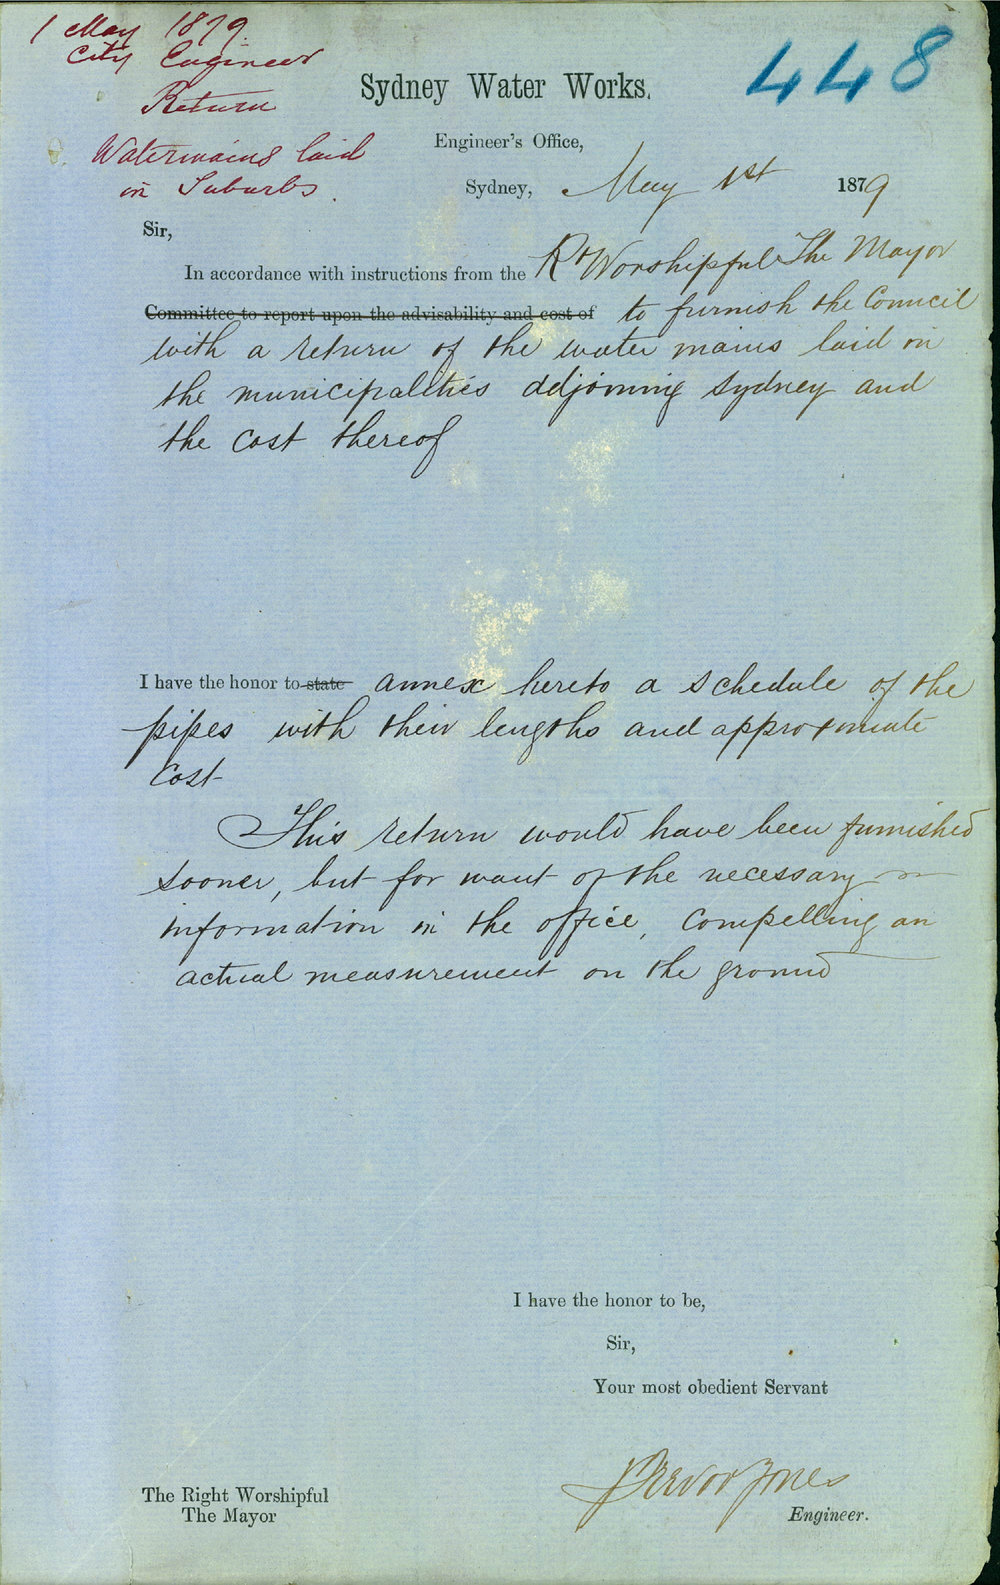 1 May 1879.
City Engineer
Return
Watermains laid
in Suburbs.
448
Sydney Water Works.
Engineer's Office,
Sydney, May 1st 1879
Sir,
In accordance with instructions from the Rt Worshipful The Mayor
Committee to report upon the advisability and cost of to furnish the Council
with a return of the water mains laid in
the municipalities adjoining Sydney and
the cost thereof
I have the honor to state annex hereto a schedule of the
pipes with their lengths and approximate
Cost
This return would have been furnished
sooner, but for want of the necessary
information in the office, compelling an
actual measurement on the ground
I have the honor to be,
Sir,
Your most obedient Servant
Trevor Jones
Engineer.
The Right Worshipful
The Mayor